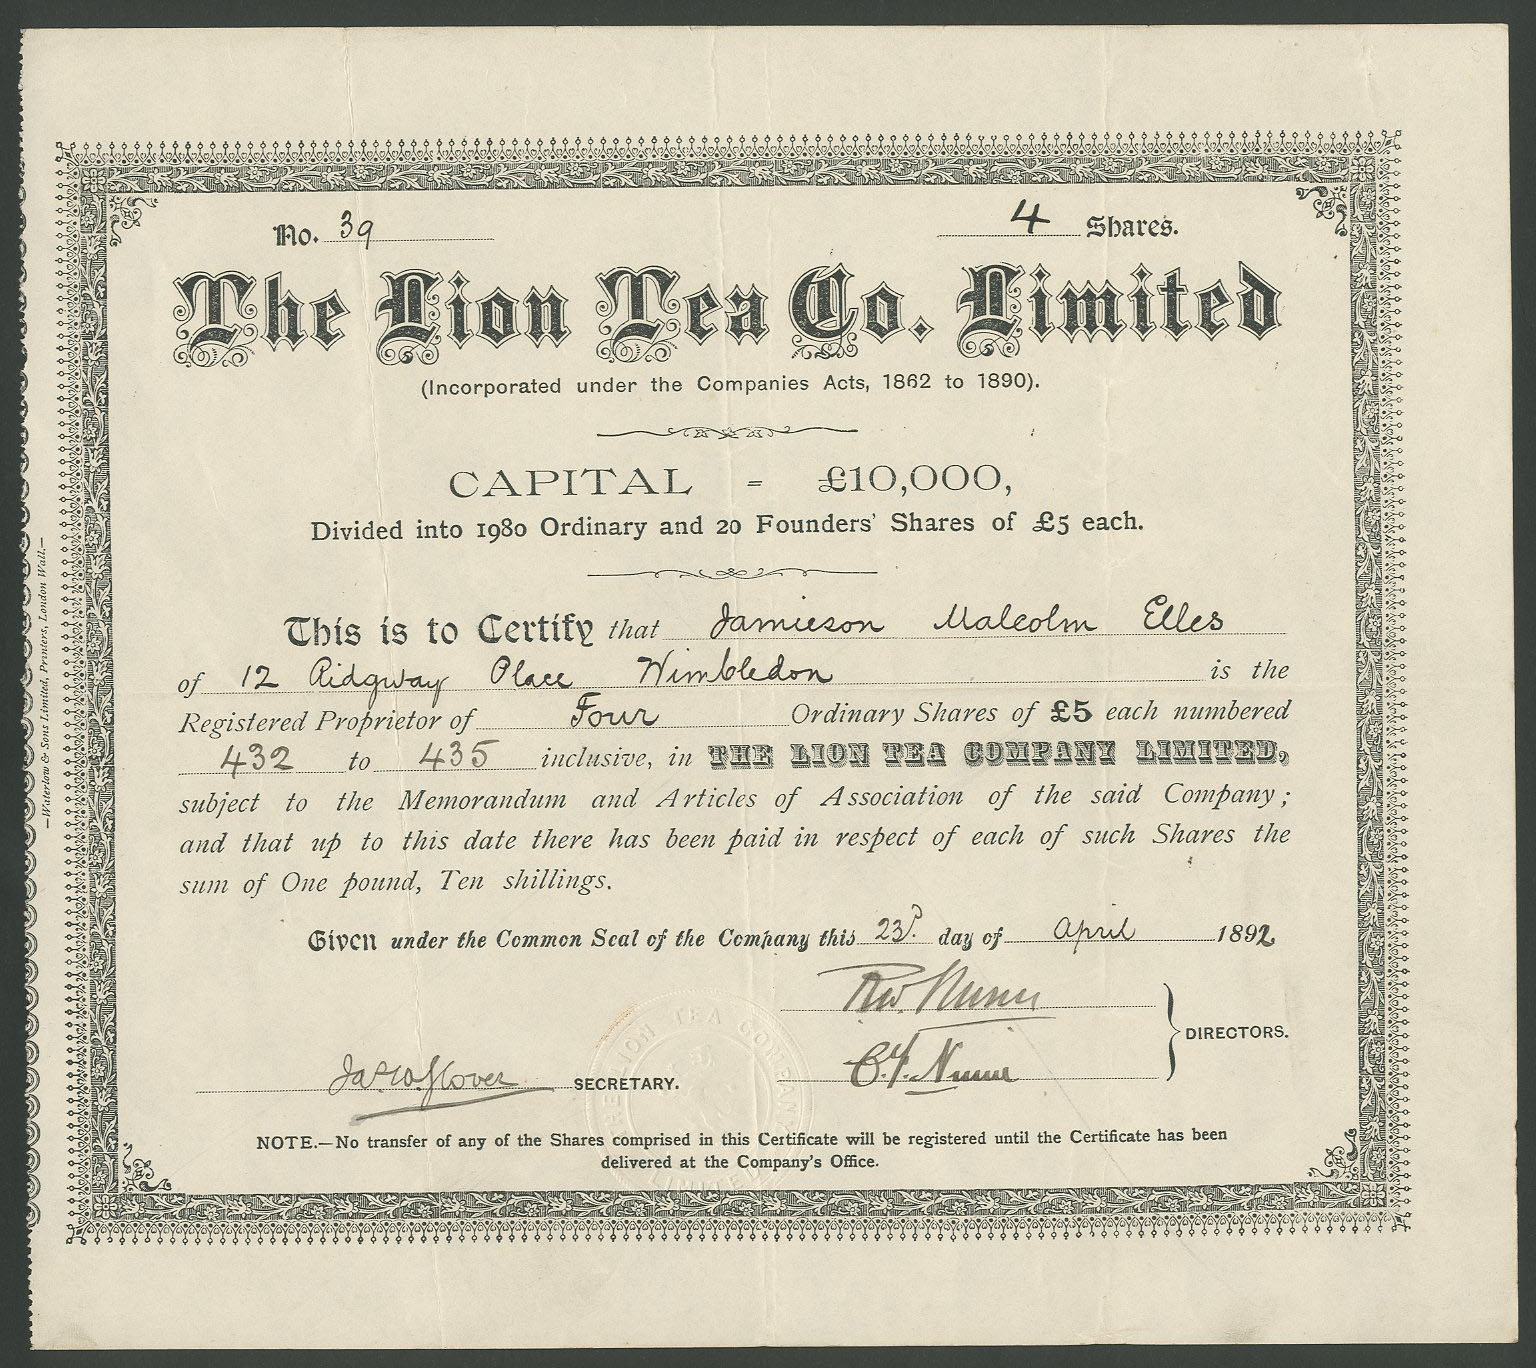 No. 39 4 Shares.
The Lion Tea Co. Limited
(Incorporated under the Companies Acts, 1862 to 1890).
CAPITAL = £10,000,
Divided into 1980 Ordinary and 20 Founders' Shares of £5 each.
This is to Certify that Jamieson Malcolm Elles
of 12 Ridgway Place Wimbledon is the
Registered Proprietor of Four Ordinary Shares of £5 each numbered
432 to 435 inclusive, in THE LION TEA COMPANY LIMITED,
subject to the Memorandum and Articles of Association of the said Company;
and that up to this date there has been paid in respect of each of such Shares the
sum of One pound, Ten shillings.
Given under the Common Seal of the Company this 23d. day of April 1892
DIRECTORS.
SECRETARY.
THE LION TEA COMPANY LIMITED
NOTE.—No transfer of any of the Shares comprised in this Certificate will be registered until the Certificate has been
delivered at the Company's Office.
—Waterlow & Sons Limited, Printers, London Wall.—